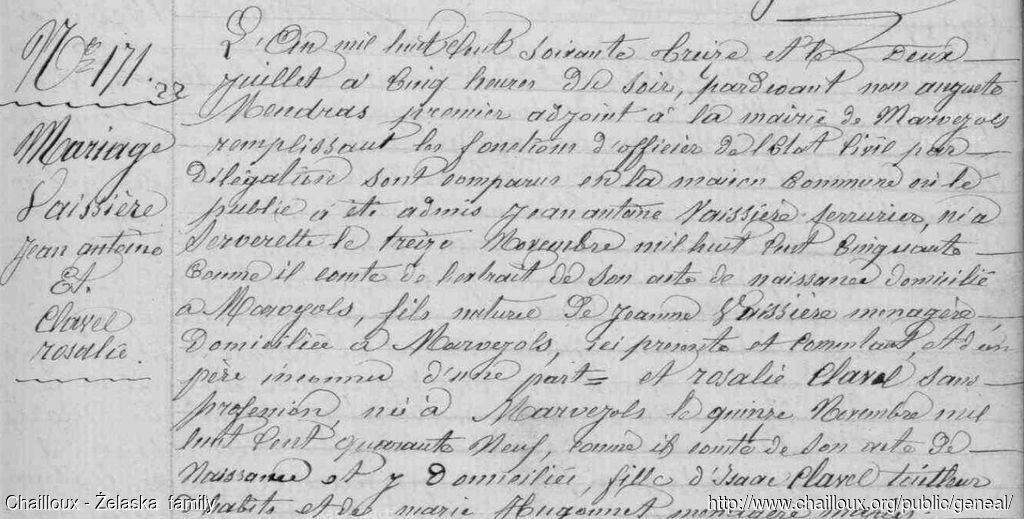 N° 171.
22
Mariage
Vaissière
Jean antoine
Et.
Clavel
rosalie.
L'An mil huit Cent soixante treize et le Deux
Juillet à Cinq heures du soir, pardevant nous auguste
Mendras premier adjoint à la mairie de Marvejols
remplissant les fonctions d'officier de l'Etat Civil par
Délégation sont comparus en la maison Commune où le
public à été admis Jean antoine Vaissière serrurier, né a
Serverette le treize Novembre mil huit Cent Cinquante
Comme il conste de l'extrait de son acte de naissance domicilié
a Marvejols, fils naturel De Jeanne Vaissière menagère,
Domiciliée à Marvejols, ici presente et Consentant, et d'un
père inconnu d'une part= et rosalie Clavel sans
profession, né à Marvejols le quinze Novembre mil
huit Cent quarante Neuf, comme il conste de son acte de
Naissance et y Domiciliée, fille d'Isaac Clavel tailleur
d'habits et de marie Hugonnet menagère
Chailloux - Želaska family
http://www.chailloux.org/public/geneal/